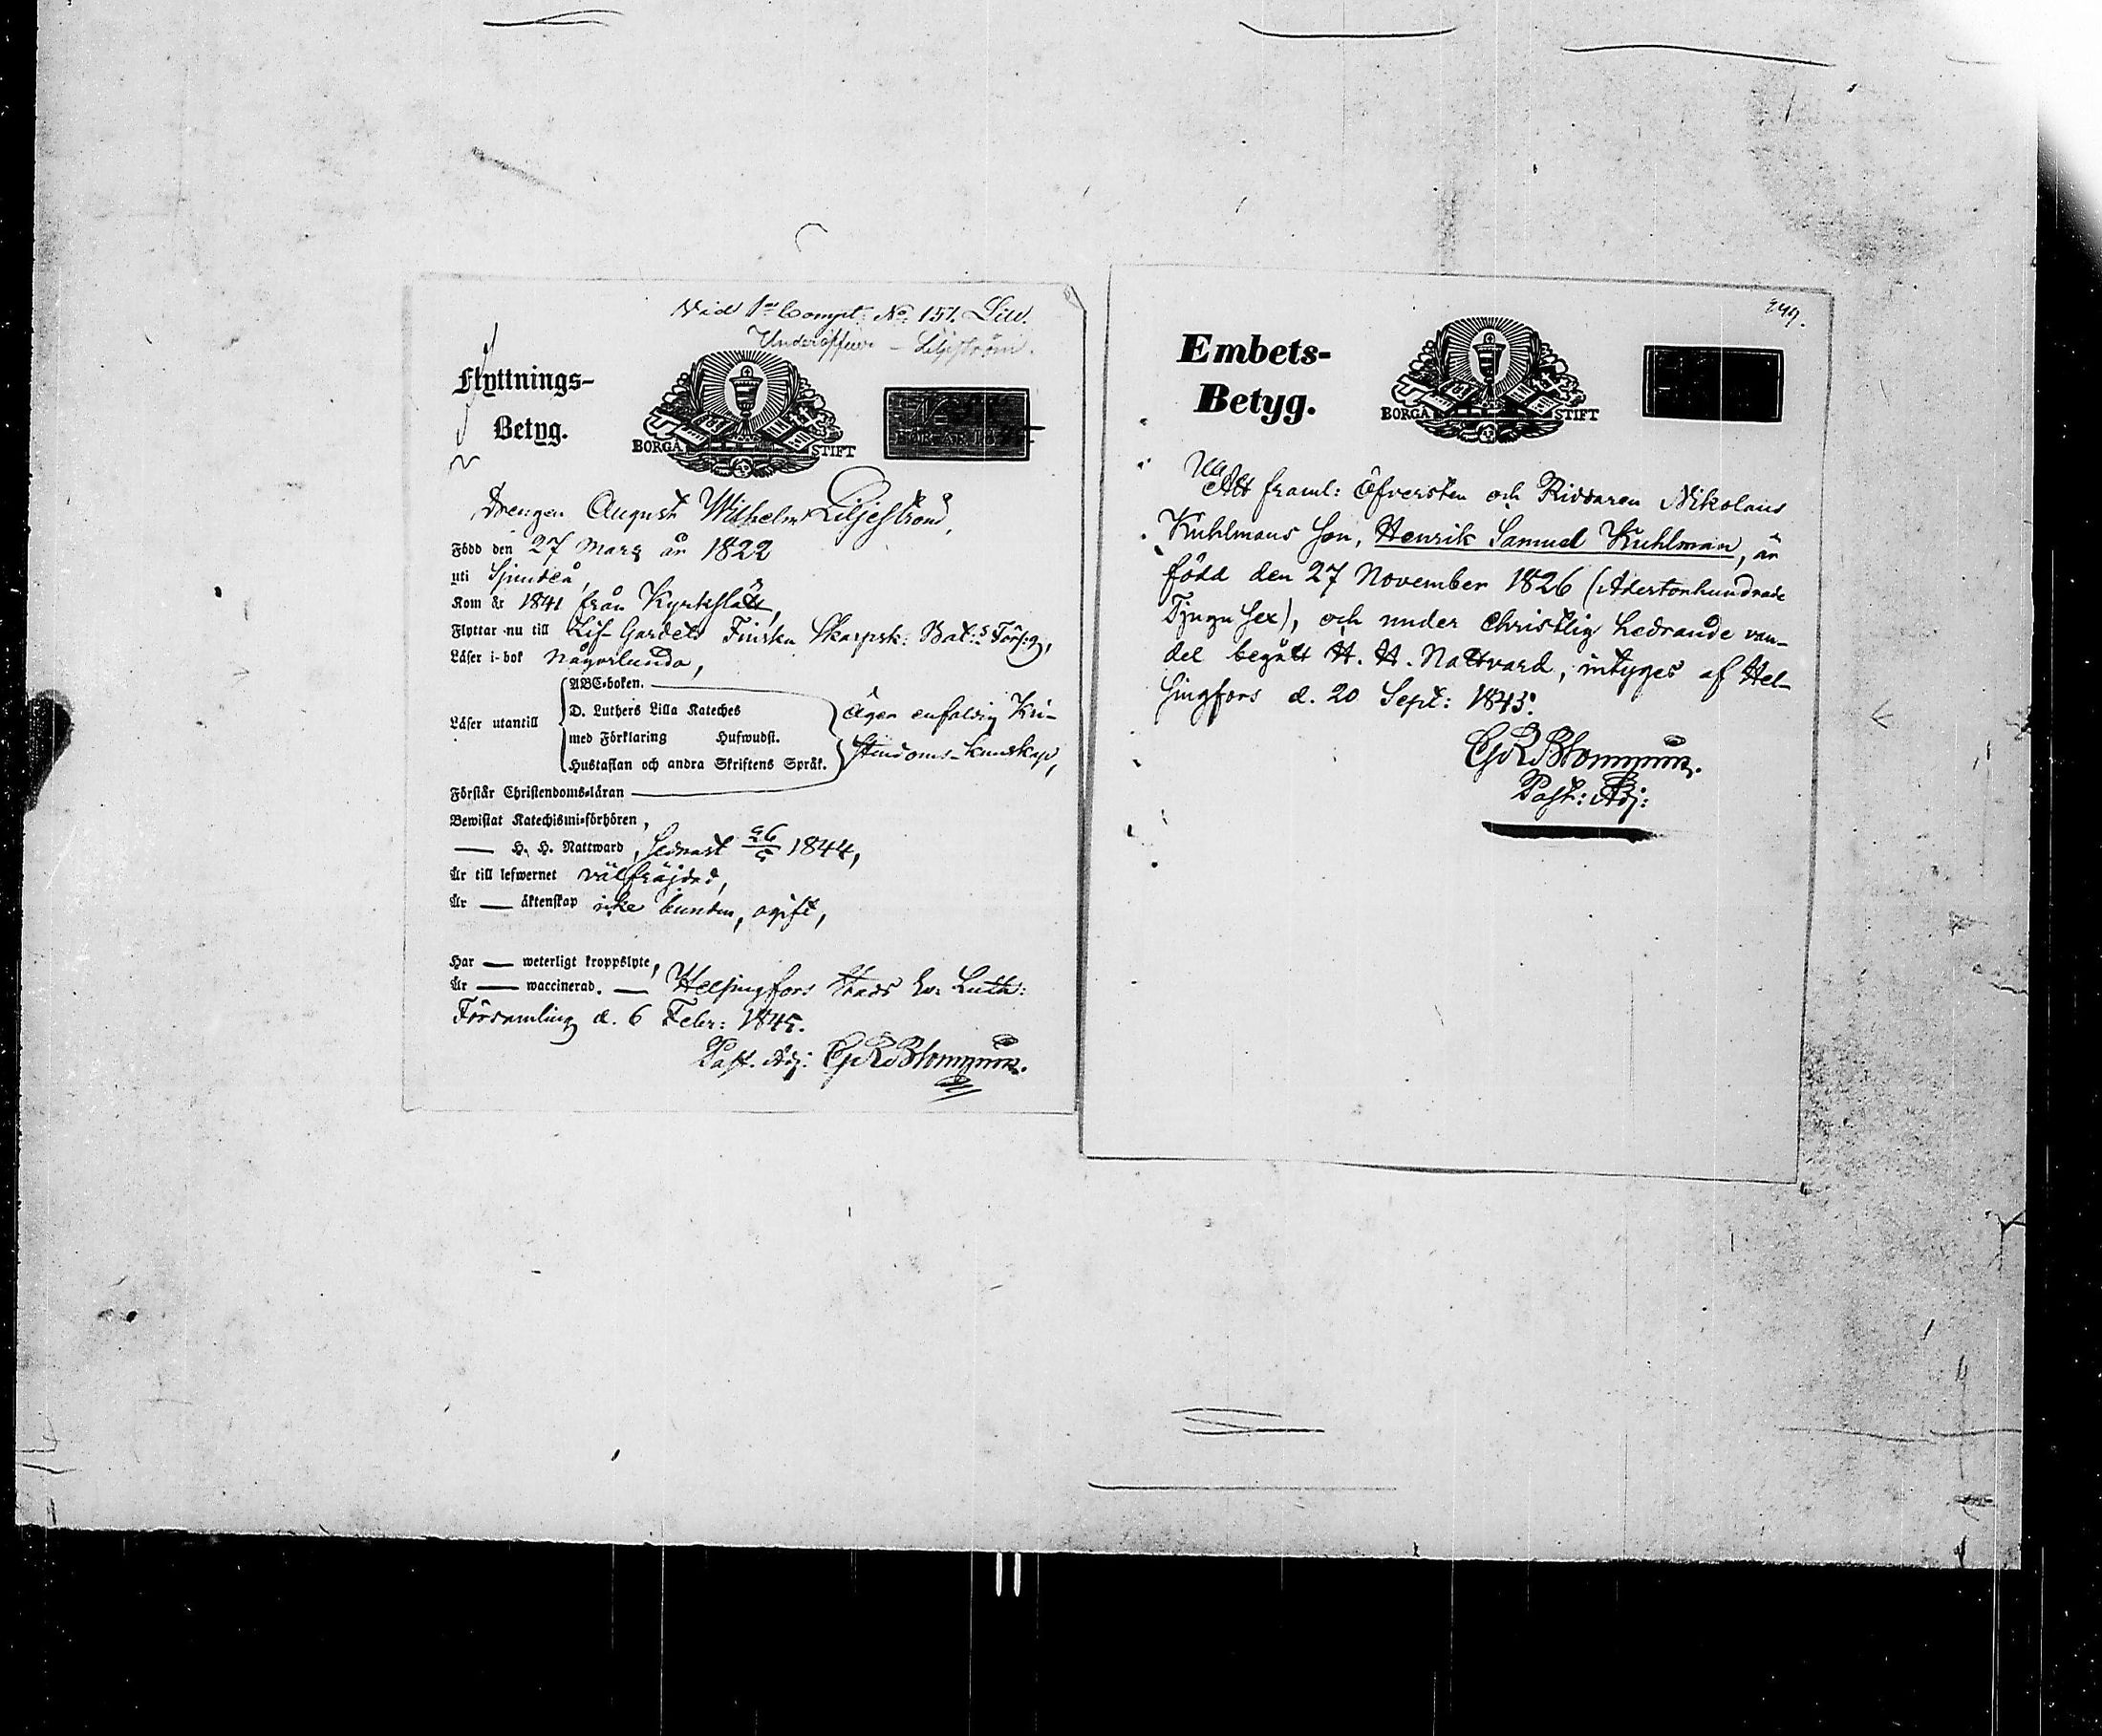 Vid 1:a Compt: No: 157. Liw.
Underofficer - Liljeström.
Flyttnings-
Betyg.
BORGÅ STIFT
Drengen August Wilhelm Liljeström,
Född den 27 Mars år 1822
uti Sjundeå,
Kom år 1841 från Kyrkslätt,
Flyttar nu till Lif-Gardets Finska Skarpsk: Bat:s Förs:g,
Läser i-bok någorlunda,
Läser utantill
ABC-boken.
D. Luthers Lilla Kateches
med Förklaring Hufwudst.
Hustaflan och andra Skriftens Språk.
Äger enfaldig Kri-
stendoms-kunskap,
Förstår Christendoms-läran
Bewistat Katechismi-förhören,
— H. H. Nattward, senast 26/5 1844,
Är till lefwernet välfräjdad,
Är — äktenskap icke bunden, ogift,
Har — weterligt kroppslyte,
Är — waccinerad. — Helsingfors Stads Ev. Luth:
Församling d. 6 Febr: 1845.
Past. Adj: G R Blommqvist.
249.
Embets-
Betyg.
BORGÅ STIFT
Att framl: Öfversten och Riddaren Nikolaus
Kuhlmans son, Henrik Samuel Kuhlman, är
född den 27 November 1826 (Adertonhundrade
Tjugu sex), och under Christlig hedrande van-
del begått H. H. Nattvard, intyges af Hel-
singfors d. 20 Sept: 1843.
Past: Adj: